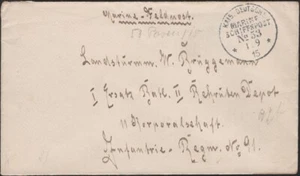 Marine-Feldpost.
KAIS. DEUTSCHE
MARINE-
SCHIFFSPOST
No 53
1 9
15
Landsturmm. W. Brüggemann
I Ersatz Batl. II Rekruten Depot
11 Korporalschaft.
Infantrie-Regm. No 91.